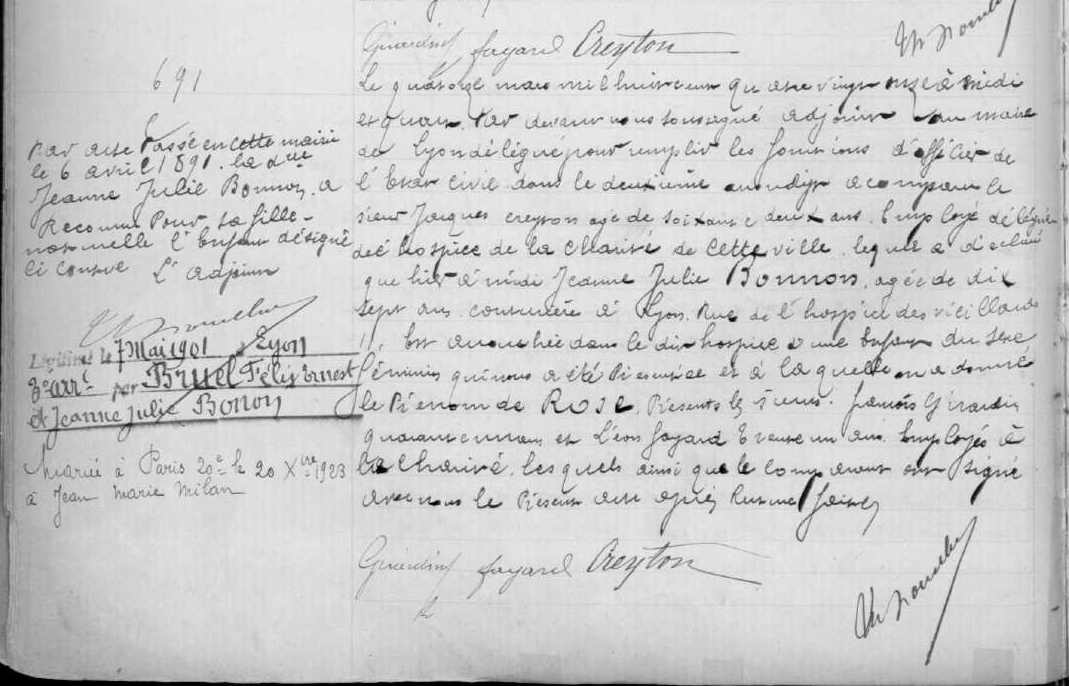 Girardin fayard Creyton
691
Par acte Passé en cette mairie
le 6 avril 1891. la dlle
Jeanne Julie Bonnon, a
Reconnu Pour sa fille
naturelle l'Enfant désigné
ci contre L'adjoint
Légitimée le 7 Mai 1901 à Lyon
3e arrt par Bruel Félix Ernest
et Jeanne Julie Bonon
Mariée à Paris 20e le 20 Xbre 1923
à Jean Marie Milan
Le quatorze mars mil huit cent quatre vingt onze à midi
et quart. Par devant nous soussigné adjoint au maire
de Lyon délégué pour remplir les fonctions d'officier de
l'Etat civil dans le deuxième arrondist a comparu le
sieur Jacques Creyton agé de soixante deux ans. Employé délégué
de l'hospice de la Charité de Cette ville. lequel a déclaré
que hier à midi Jeanne Julie Bonnon, agée de dix
sept ans, couturière à Lyon, Rue de l'hospice des vieillards
11, Est accouchée dans le dit hospice d'une Enfant du sexe
féminin qui nous a été Présentée et à laquelle on a donné
le Prénom de Rose. Présents les sieurs. François Girardin
quarante un ans et Léon fayard trente un ans. Employés à
la Charité, lesquels ainsi que le comparant ont signé
avec nous le Présent acte après lecture faite
Girardin fayard Creyton